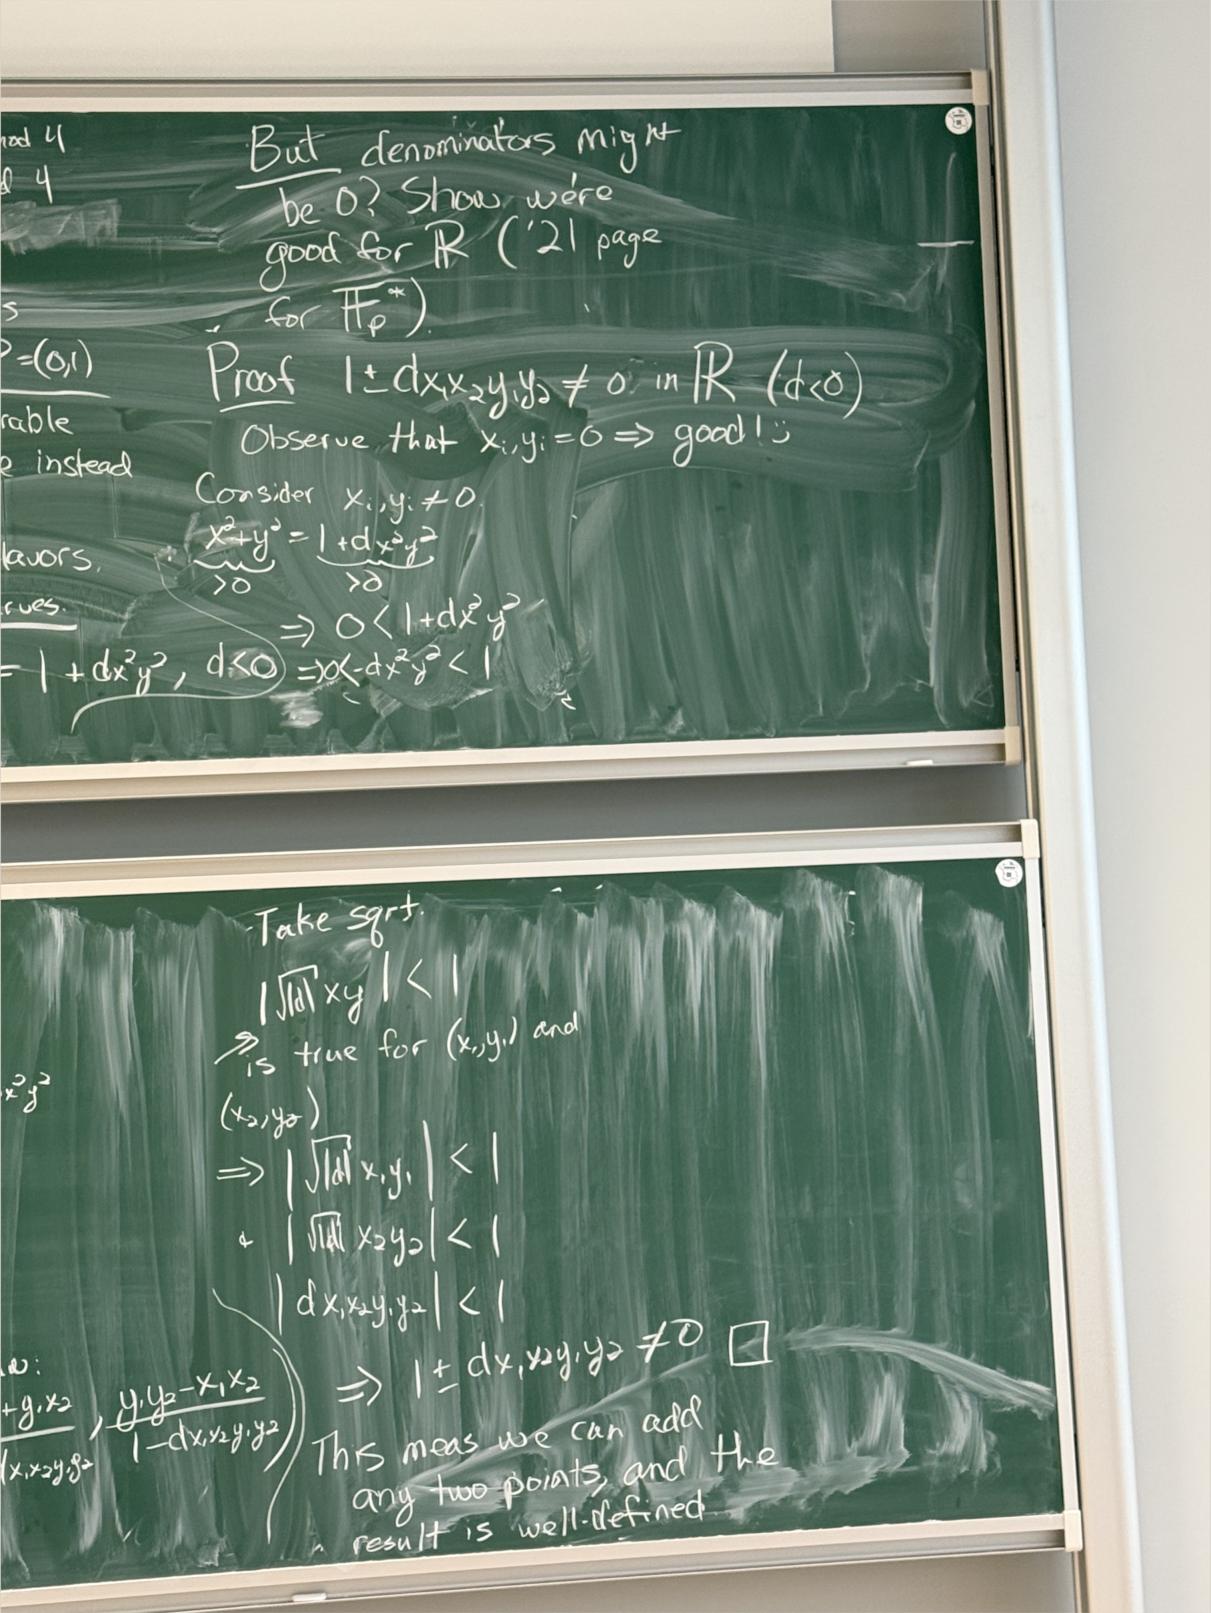 mod 4
d 4
s
P=(0,1)
rable
e instead
lavors.
rves.
= 1 + dx²y², d<0
But denominators might
be 0? Show we're
good for ℝ ('21 page
for 𝔽ₚ*).
Proof 1 ± dx₁x₂y₁y₂ ≠ 0 in ℝ (d<0)
Observe that xᵢ,yᵢ = 0 ⇒ good! :)
Consider xᵢ,yᵢ ≠ 0.
x²+y² = 1+dx²y²
>0 >0
⇒ 0 < 1+dx²y²
⇒ 0<-dx²y² < 1
x²y²
w:
+y₁x₂ , y₁y₂-x₁x₂
dx₁x₂y₁y₂ 1-dx₁x₂y₁y₂
Take sqrt.
|√|d| xy| < 1
is true for (x₁,y₁) and
(x₂,y₂)
⇒ |√|d| x₁y₁| < 1
& |√|d| x₂y₂| < 1
|dx₁x₂y₁y₂| < 1
⇒ 1 ± dx₁x₂y₁y₂ ≠ 0 □
This meas we can add
any two points, and the
result is well-defined.